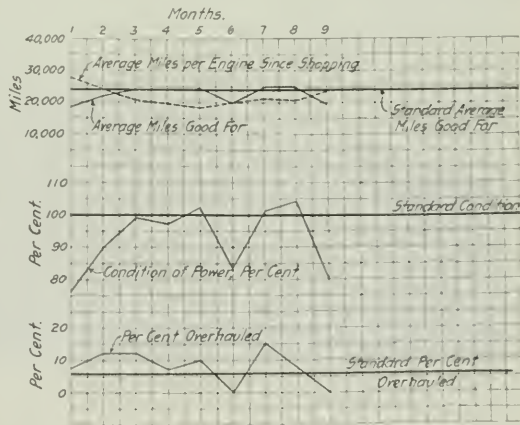 Months.
1 2 3 4 5 6 7 8 9
40,000
30,000
20,000
10,000
Miles
Average Miles per Engine Since Shopping
Average Miles Good For
Standard Average
Miles Good For
110
100
90
80
Per Cent.
Standard Condition
Condition of Power, Per Cent
20
10
0
Per Cent.
Per Cent Overhauled
Standard Per Cent
Overhauled